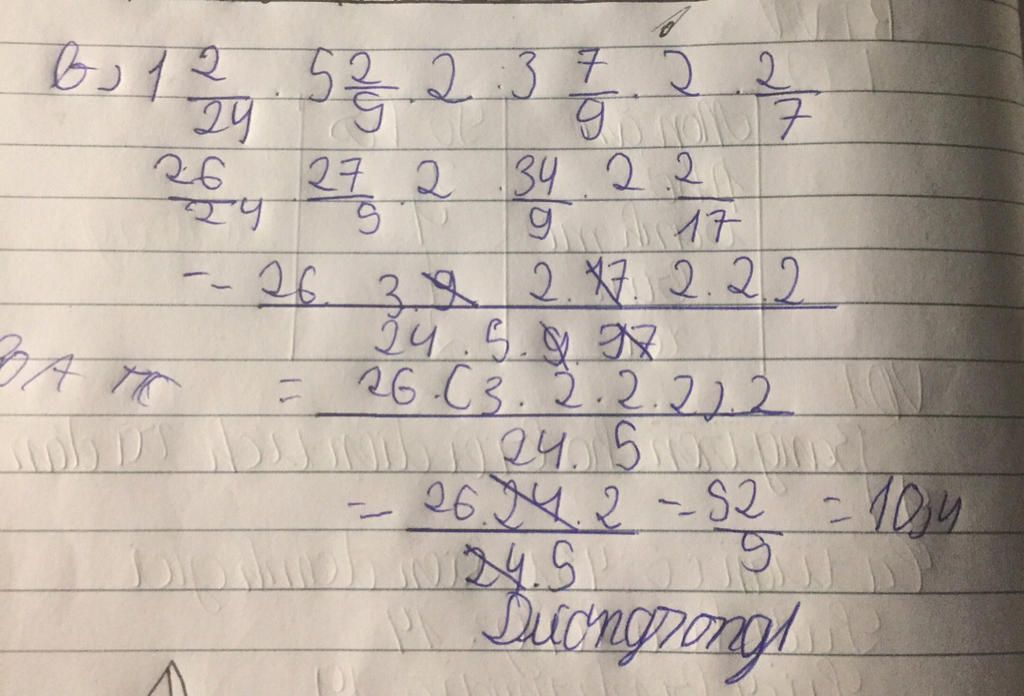 b) 1 2/24 . 5 2/9 . 2 . 3 7/9 . 2 . 2/7
26/24 . 27/5 . 2 . 34/9 . 2 . 2/17
= 26 . 3 . 9 2 . 17 . 2 . 2 2 / 24 . 5 . 9 . 97
= 26 . (3 . 2 . 2 . 2) . 2 / 24 . 5
= 26 . 24 . 2 / 24 . 5 = 52/5 = 10,4